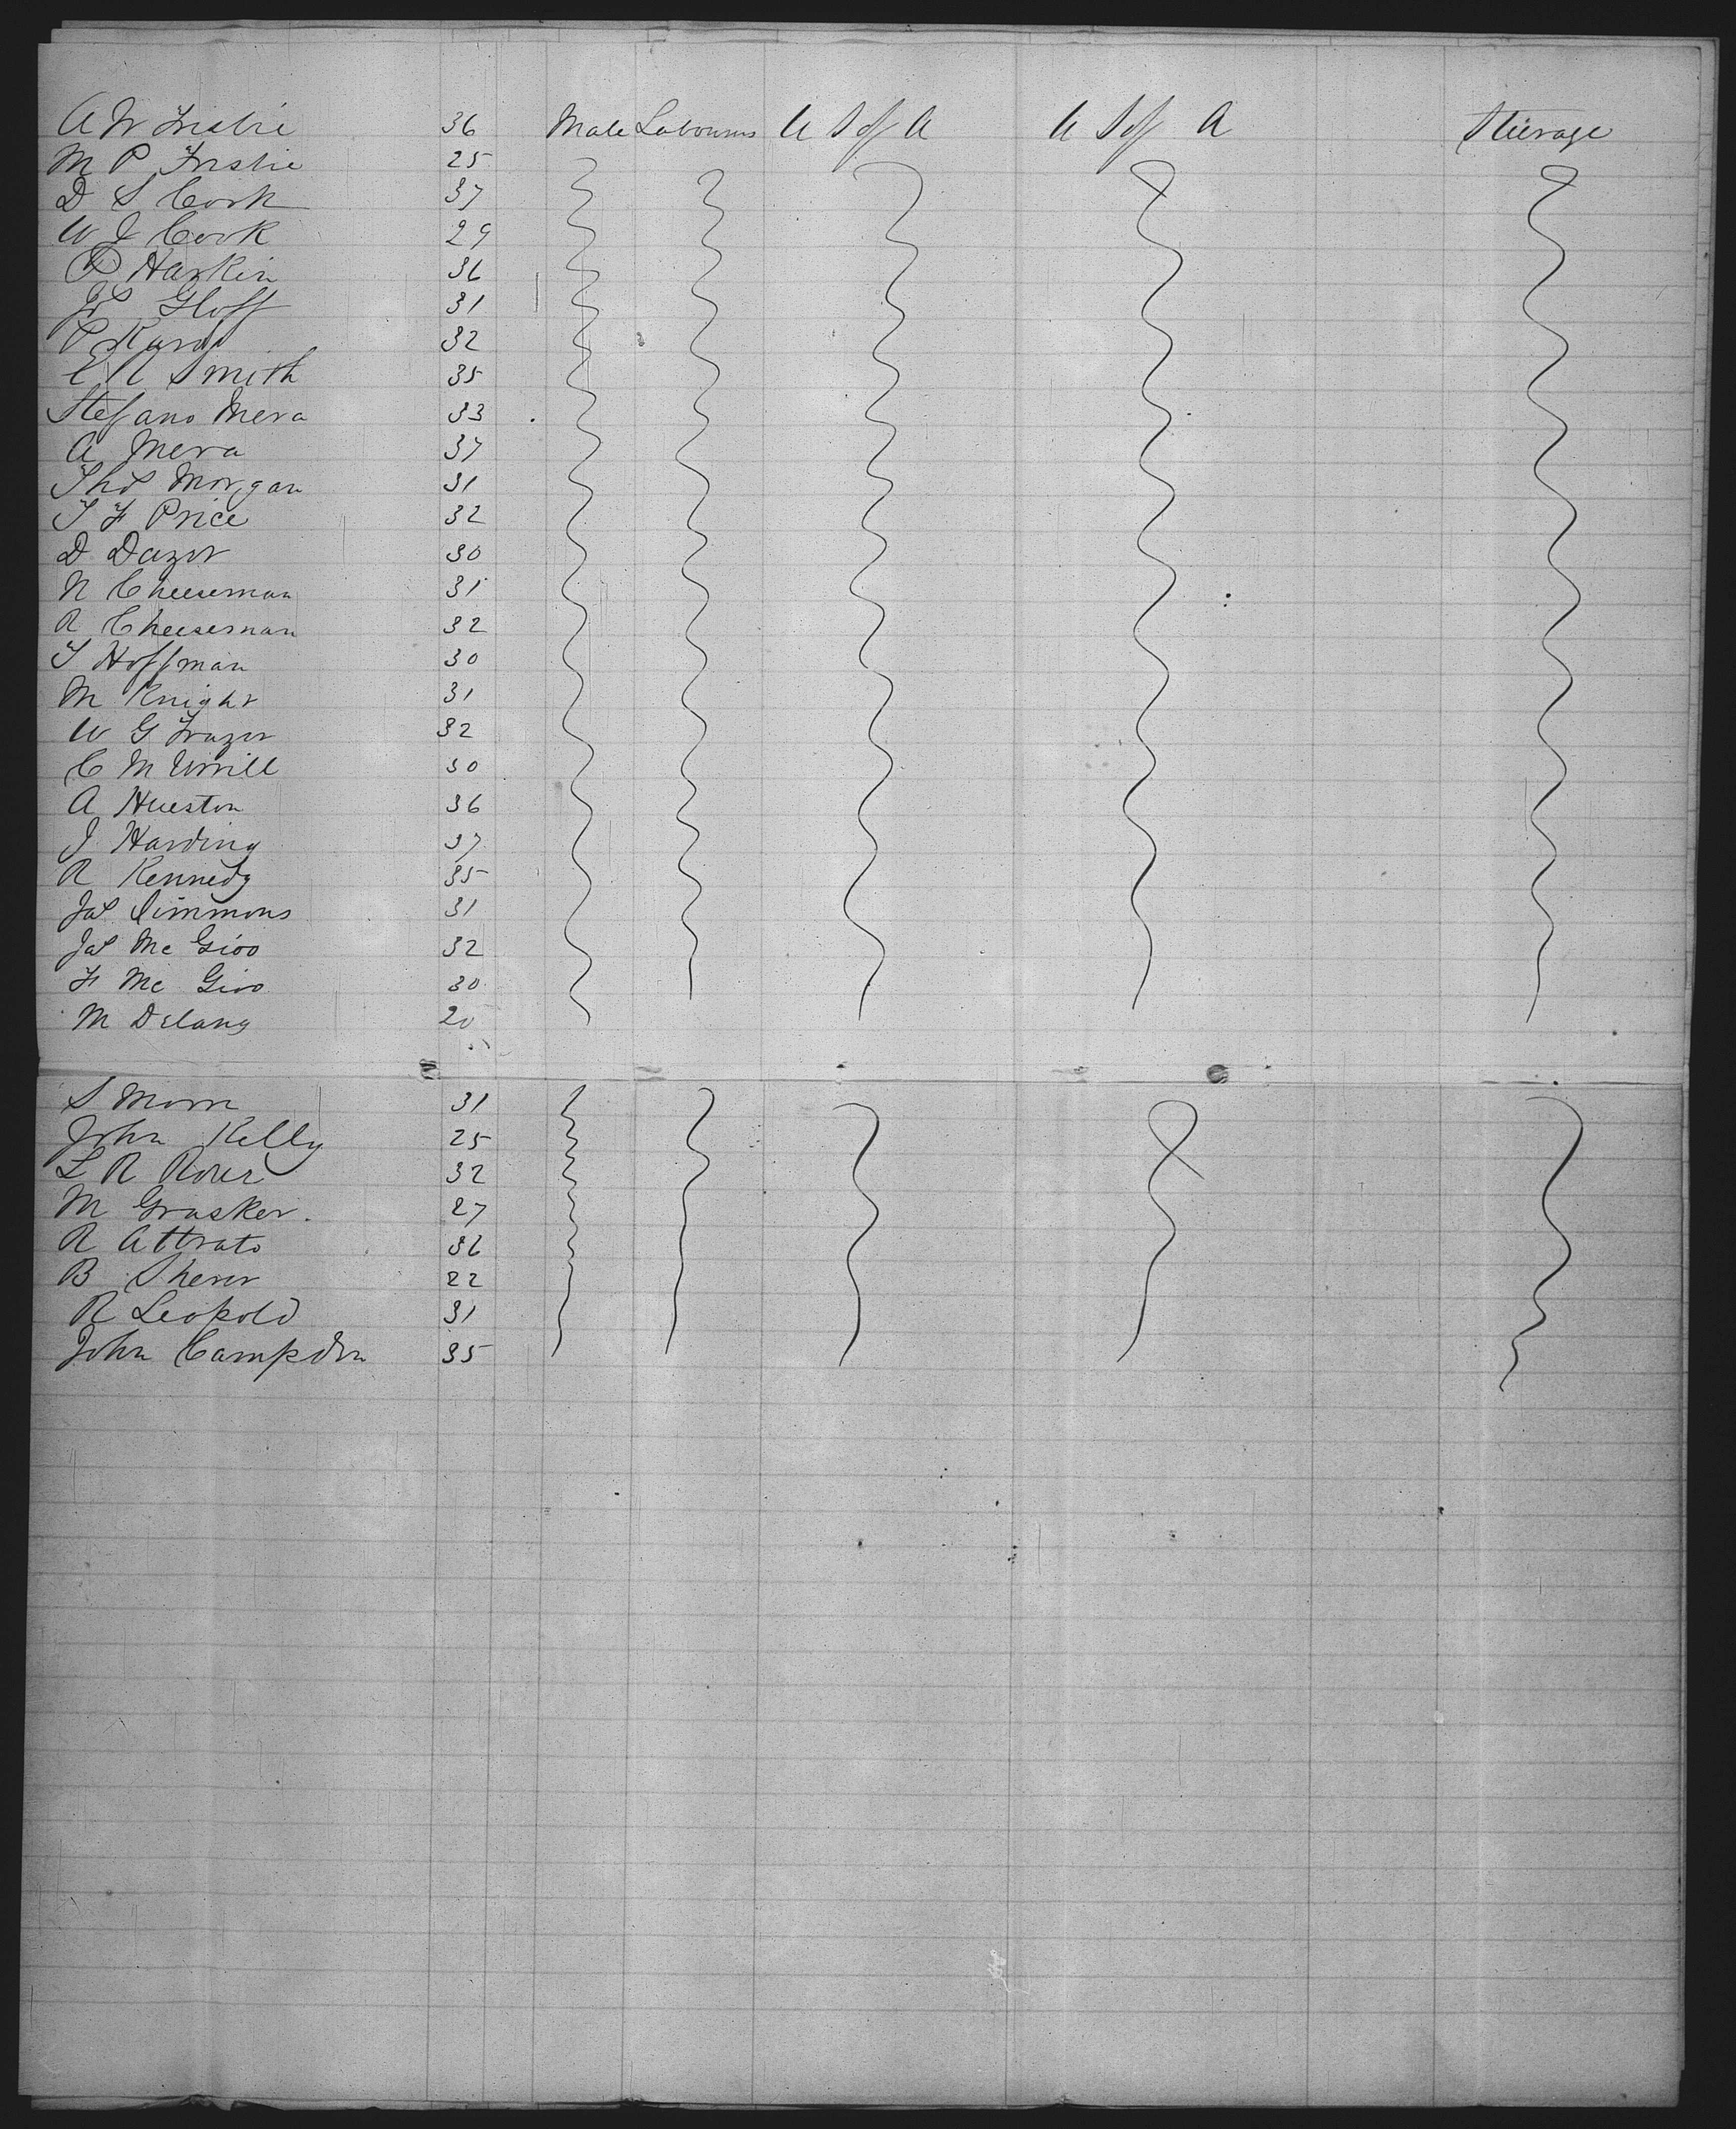 A W Frisbie 36 Male Labourers U S of A U S of A Steerage
M P Frisbie 25
D S Cook 37
W J Cook 29
P Harkin 36
Js Gloff 31
P 32
E R Smith 35
Stefano Mera 33
A Mera 37
Thos Morgan 31
T F Price 32
D Dazer 30
N Cheeseman 31
R Cheeseman 32
T Hoffman 30
M Knight 31
W G Frazer 32
C M Urrill 30
A Hueston 36
J Harding 37
R Kennedy 35
Jas Simmons 31
Jas Mc Gioo 32
F Mc Gioo 30
M Delany 20
S 31
John Kelly 25
L R 32
M Grasker. 27
R Attrato 36
B Sherer 22
R Leopold 31
John Campdon 35